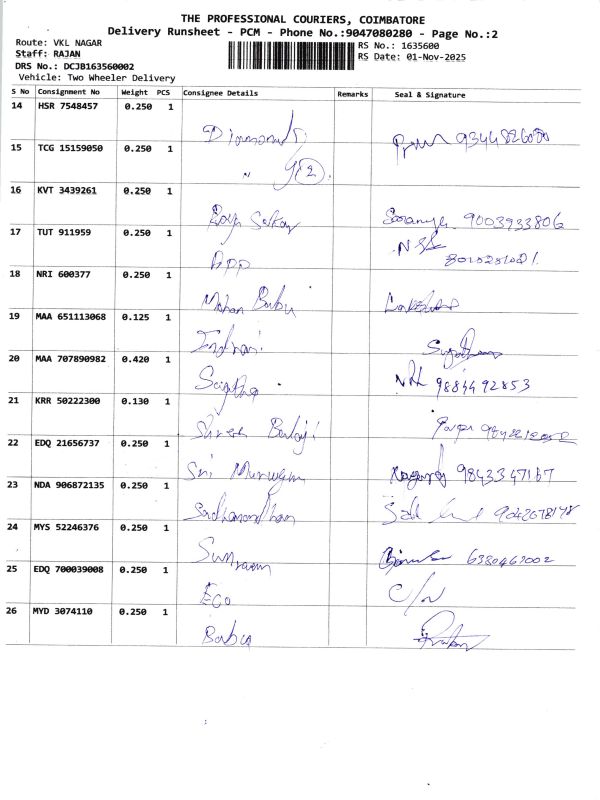 THE PROFESSIONAL COURIERS, COIMBATORE
Delivery Runsheet - PCM - Phone No.:9047080280 - Page No.:2
Route: VKL NAGAR
RS No.: 1635600
Staff: RAJAN
RS Date: 01-Nov-2025
DRS No.: DCJB163560002
Vehicle: Two Wheeler Delivery
S No Consignment No Weight PCS Consignee Details Remarks Seal & Signature
14 HSR 7548457 0.250 1
Diamond
15 TCG 15159050 0.250 1
" 2
16 KVT 3439261 0.250 1
Saranya 9003933806
17 TUT 911959 0.250 1
App
18 NRI 600377 0.250 1
Mohan Babu
19 MAA 651113068 0.125 1
Indrani
20 MAA 707890982 0.420 1
9884492853
21 KRR 50222300 0.130 1
Balaji
22 EDQ 21656737 0.250 1
Sri Murugan 9843347167
23 NDA 906872135 0.250 1
Sadhanandhan
24 MYS 52246376 0.250 1
6380463002
25 EDQ 700039008 0.250 1
ECO C/N
26 MYD 3074110 0.250 1
Babu